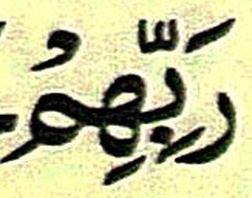 رَبِّهِمُ